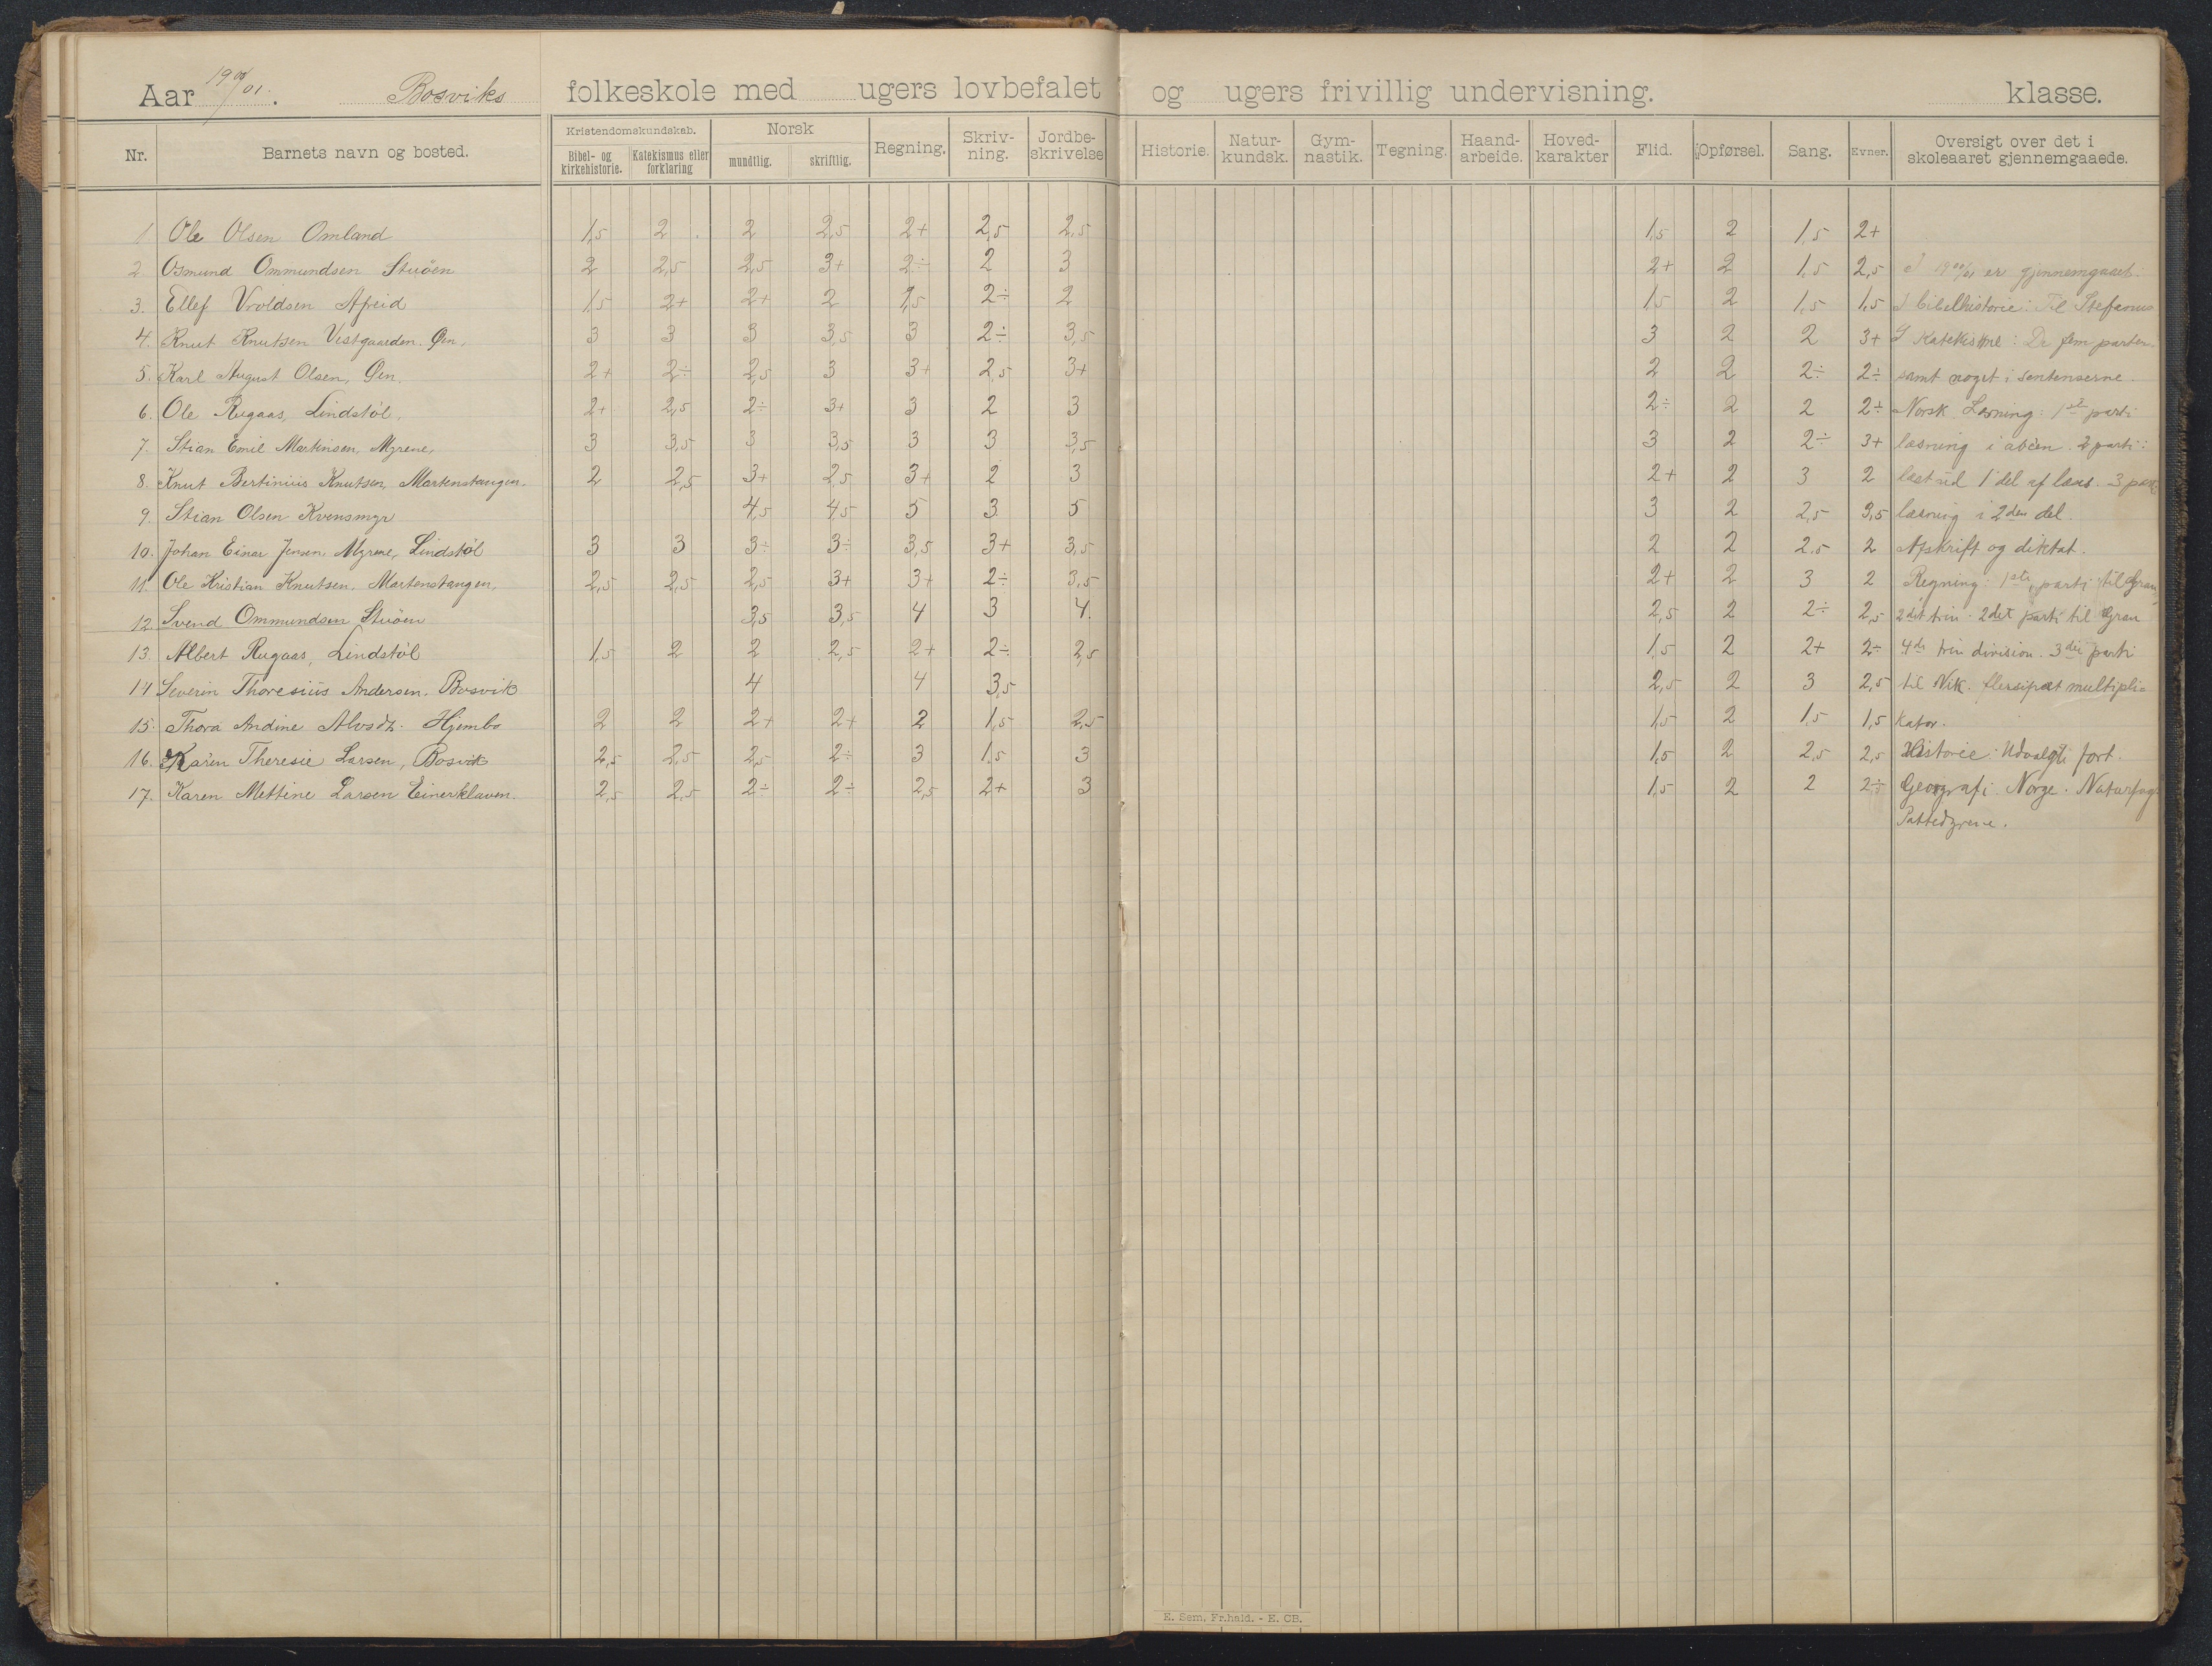 Aar 1900/01. Bosviks folkeskole med ugers lovbefalet og ugers frivillig undervisning. klasse.
Nr. Barnets navn og bosted. Kristendomskundskab. Bibel- og kirkehistorie. Katekismus eller forklaring Norsk mundtlig. skriftlig. Regning. Skriv-ning. Jordbe-skrivelse Historie. Natur-kundsk. Gym-nastik. Tegning. Haand-arbeide. Hoved-karakter Flid. Opførsel. Sang. Evner. Oversigt over det i skoleaaret gjennemgaaede.
1 Ole Olsen Omland 1,5 2 2 2,5 2+ 2,5 2,5 1,5 2 1,5 2+
2 Osmund Ommundsen Stuöen 2 2,5 2,5 3+ 2÷ 2 3 2+ 2 1,5 2,5 I 1900/01 er gjennemgaaet:
3. Ellef Vroldsen Apeid 1,5 2+ 2+ 2 1,5 2÷ 2 1,5 2 1,5 1,5 I bibelhistorie: Til Stefanus
4. Knut Knutsen Vestgaarden. Øen. 3 3 3 3,5 3 2÷ 3,5 3 2 2 3+ I : De fem parter
5. Karl August Olsen, Øen. 2+ 2÷ 2,5 3 3+ 2,5 3+ 2 2 2÷ 2÷ samt noget i sentenserne.
6. Ole Rugaas, Lindstöl. 2+ 2,5 2÷ 3+ 3 2 3 2÷ 2 2 2÷ Norsk Læsning: 1ste parti
7. Stian Emil Martinsen, Myrene, 3 3,5 3 3,5 3 3 3,5 3 2 2÷ 3+ læsning i abcen. 2 parti:
8. Knut Bertinius Knutsen, Martenstangen. 2 2,5 3+ 2,5 3+ 2 3 2+ 2 3 2 læst ud 1 del af læs. 3 part
9. Stian Olsen Kvensmyr 4,5 4,5 5 3 5 3 2 2,5 3,5 læsning i 2den del.
10. Johan Einar Jensen Myrene, Lindstöl 3 3 3÷ 3÷ 3,5 3+ 3,5 2 2 2,5 2 Afskrift og diktat.
11. Ole Kristian Knutsen, Martenstangen, 2,5 2,5 2,5 3+ 3+ 2÷ 3,5 2+ 2 3 2 Regning: 1ste parti til Gran
12. Svend Ommundsen Stuöen 3,5 3,5 4 3 4. 2,5 2 2÷ 2,5 2det trin. 2det parti til Gran
13. Albert Rugaas, Lindstöl 1,5 2 2 2,5 2+ 2÷ 2,5 1,5 2 2+ 2÷ 4de trin division. 3die parti
14 Severin Thoresius Andersen. Bosvik 4 4 3,5 2,5 2 3 2,5 til Nik. flersifret multipli=
15. Thora Andine Alvsdt. Hjembo 2 2 2+ 2+ 2 1,5 2,5 1,5 2 1,5 1,5 kator.
16. Karen Theresie Larsen, Bosvik 2,5 2,5 2,5 2÷ 3 1,5 3 1,5 2 2,5 2,5 Historie: Udvalgte fort.
17. Karen Mettine Larsen Einerklaven. 2,5 2,5 2÷ 2÷ 2,5 2+ 3 1,5 2 2 2÷ Geografi: Norge. Naturfag
Pattedyrene.
E. Sem, Fr.hald. - E. CB.